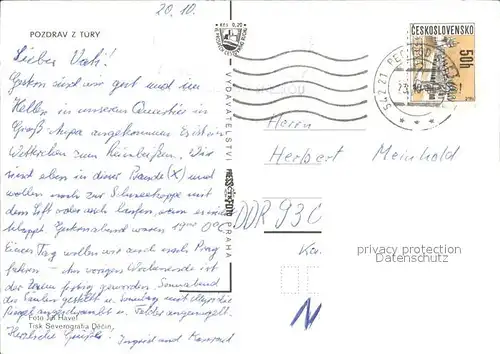 20.10.
POZDRAV Z TÚRY
Lieber Vati!
Gestern sind wir gut und im
Hellen in unserem Quartier in
Groß Aupa angekommen. Es ist ein
Wetterchen zum Reinbeißen. Wir
sind eben in dieser Baude (X) und
wollen noch zur Schneekoppe mit
dem Lift oder auch laufen, wenn es nicht
klappt. Gestern abend waren 19⁰⁰ 0°C
Einen Tag wollen wir auch nach Prag
fahren. Am vorigen Wochenende ist
der Zaun fertig geworden. Sonnabend
die Säulen gestellt u. Sonntag mit
Riegel angeschraubt u. Felder angenagelt.
Herzliche Grüße Ingrid und Konrad
Foto Jiří Havel
Tisk Severografia Děčín
Kčs 0,20
VYDAVATELSTVÍ
PRESSFOTO
PRAHA
ČESKOSLOVENSKO
50h
542 21 PEC POD
Herrn
Herbert Meinhold
DDR 93C
privacy protection
Datenschutz